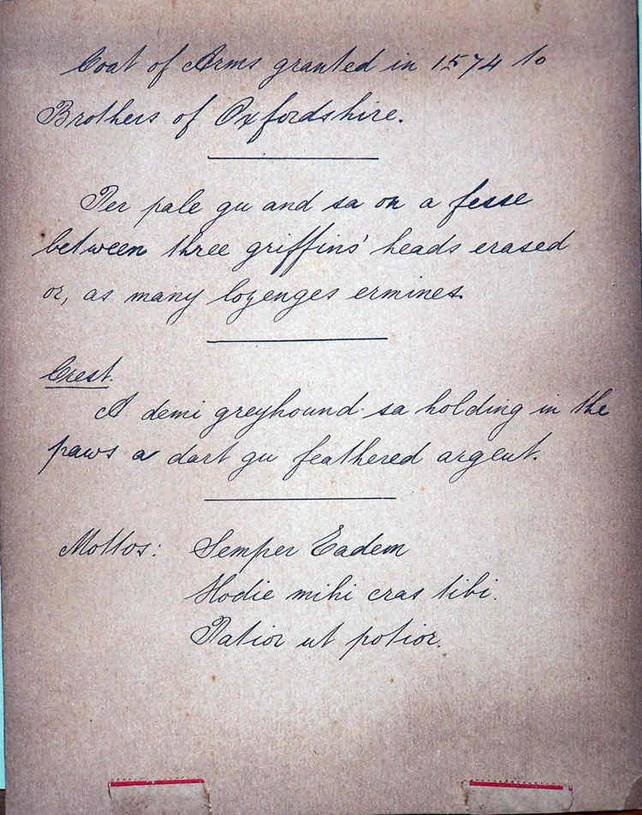 Coat of Arms granted in 1574 to
Brothers of Oxfordshire.
Per pale gu and sa on a fesse
between three griffins' heads erased
or, as many lozenges ermines
Crest.
A demi greyhound sa holding in the
paws a dart gu feathered argent.
Mottos: Semper Eadem
Hodie mihi cras tibi.
Patior ut potior.